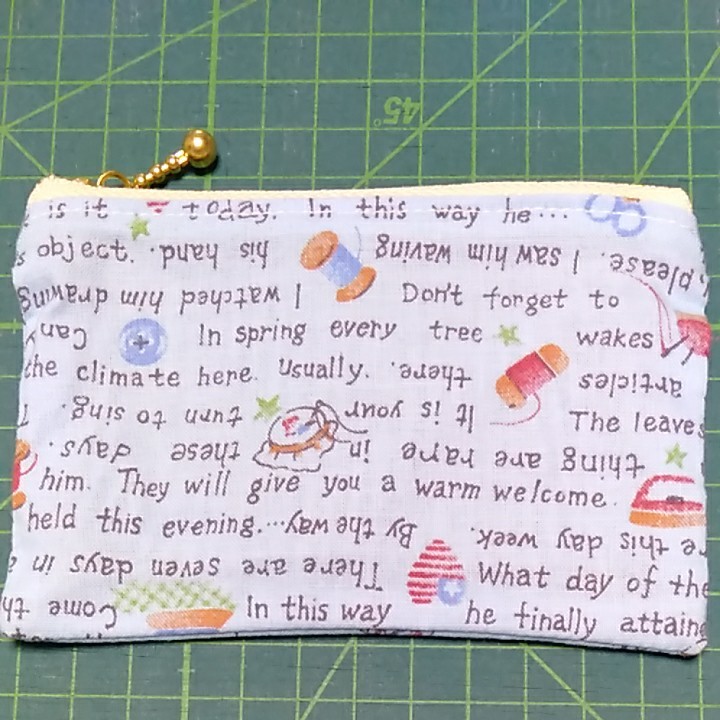 45°
is it today. In this way he...
object. his hand, put
please. I saw him waving
Don't forget to
I watched him drawing
Can In spring every tree wakes
the climate here. Usually. there. articles
It is your turn to sing. The leaves
thing are rare in these days.
him. They will give you a warm welcome.
held this evening... By the way, they
this day week.
There are seven days in
What day of the
Come In this way he finally attain